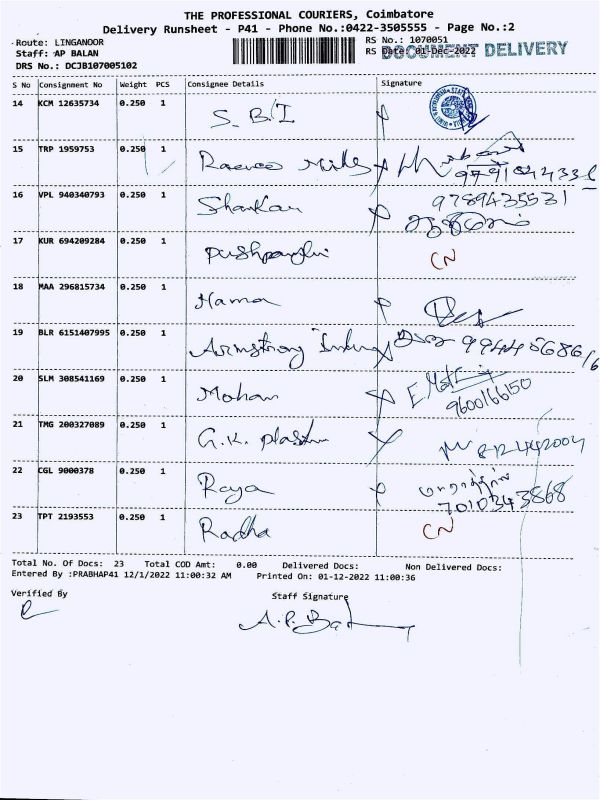 THE PROFESSIONAL COURIERS, Coimbatore
Delivery Runsheet - P41 - Phone No.:0422-3505555 - Page No.:2
Route: LINGANOOR
Staff: AP BALAN
DRS No.: DCJB107005102
RS No.: 1070051
RS Date: 01-Dec-2022
DOCUMENT DELIVERY
S No Consignment No Weight PCS Consignee Details Signature
14 KCM 12635734 0.250 1 S.B.I
15 TRP 1959753 0.250 1
16 VPL 940340793 0.250 1 Shankar 9789435531
17 KUR 694209284 0.250 1 CN
18 MAA 296815734 0.250 1 Hama
19 BLR 6151407995 0.250 1 Armstrong
20 SLM 308541169 0.250 1 Mohan 9600166150
21 TMG 200327089 0.250 1 G.K.
22 CGL 9000378 0.250 1 Raya 7010343868
23 TPT 2193553 0.250 1 Radha CN
Total No. Of Docs: 23 Total COD Amt: 0.00 Delivered Docs: Non Delivered Docs:
Entered By :PRABHAP41 12/1/2022 11:00:32 AM Printed On: 01-12-2022 11:00:36
Verified By Staff Signature